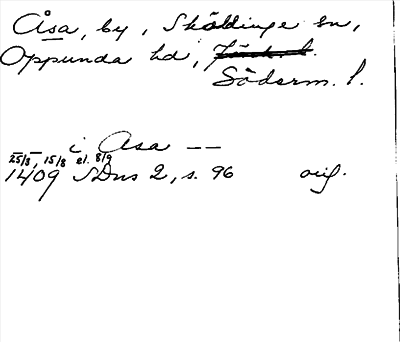 Åsa, by, Sköldinge sn,
Oppunda hd,
Söderm. l.
i Asa --
25/3, 15/8 el. 8/9
1409 SDns 2, s. 96 orig.